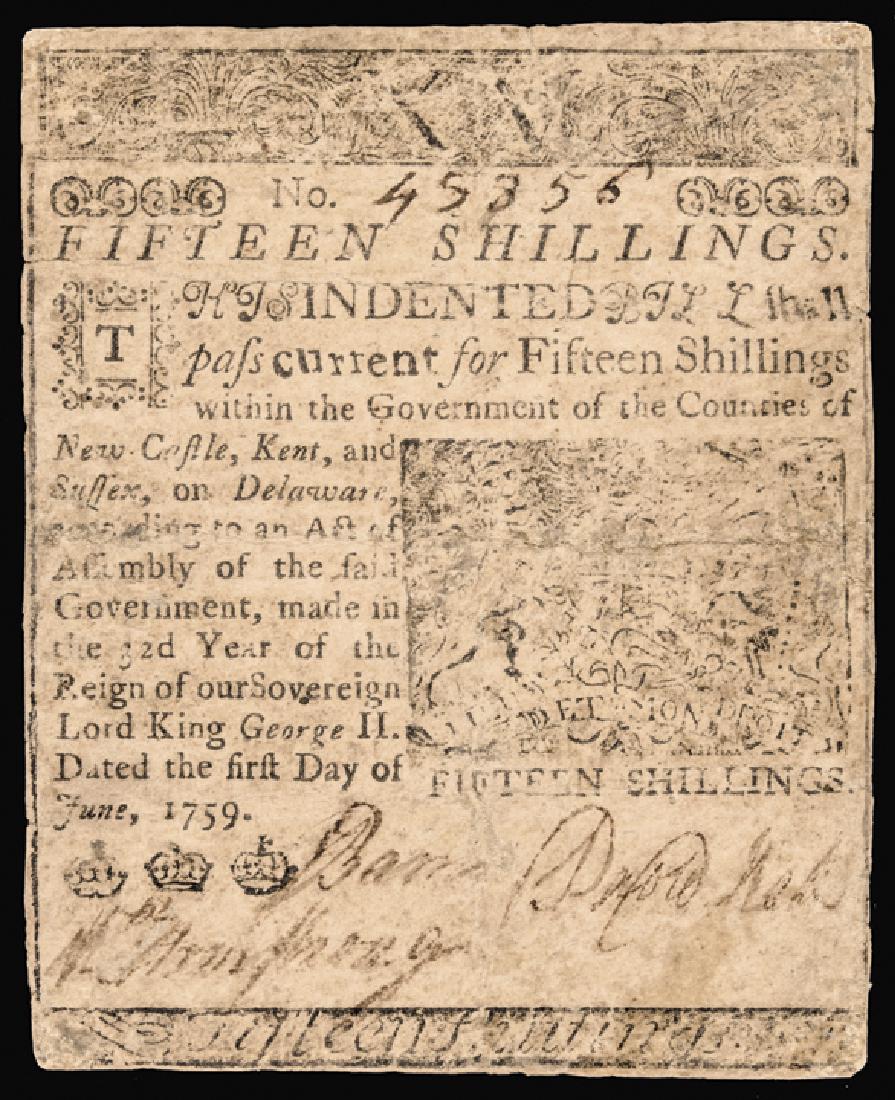 XV
No. 45356
FIFTEEN SHILLINGS.
THIS INDENTED BILL ſhall
paſs current for Fifteen Shillings
within the Government of the Counties of
New-Caſtle, Kent, and
Suſſex, on Delaware,
according to an Act of
Aſſembly of the ſaid
Government, made in
the 32d Year of the
Reign of our Sovereign
Lord King George II.
Dated the firſt Day of
June, 1759.
DIEU ET MON DROIT
FIFTEEN SHILLINGS.
Wm Armſtrong
Fifteen Shillings